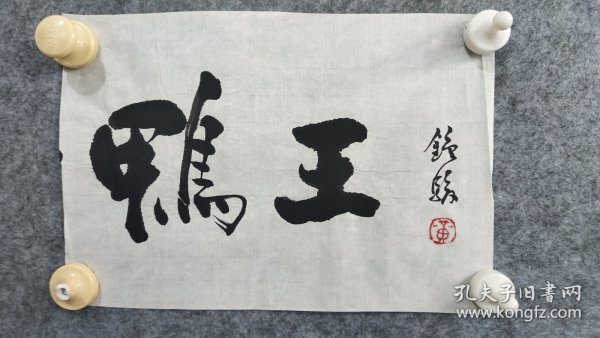 鴨王
孔夫子旧書网
www.kongfz.com